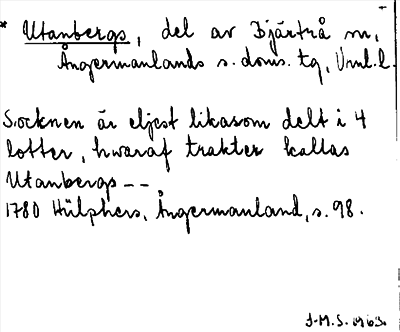 * Utanbergs, del av Bjärtrå sn,
Ångermanlands s. doms. tg, Vnl. l.
Socknen är eljest likasom delt i 4
lotter, hwaraf trakter kallas
Utanbergs --
1780 Hülphers, Ångermanland, s. 98.
J.M.S. 1963.